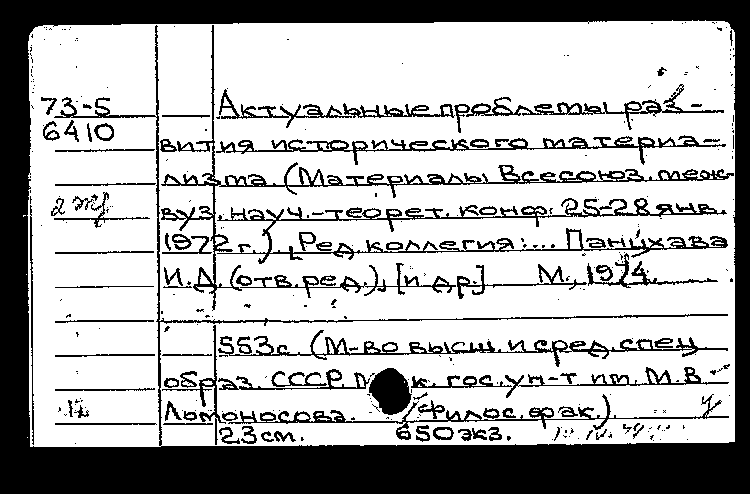 73-5
6410
Актуальные проблемы раз-
вития исторического материа-
лизма. (Материалы Всесоюз. меж-
2 экз
вуз. науч.-теорет. конф. 25-28 янв.
1972 г.). Ред. коллегия:... Панцхава
И.Д. (отв. ред.), [и др.] М., 1974.
553с. (М-во высш. и сред. спец
образ. СССР. М к. гос. ун-т им. М.В
Ломоносова. Филос. фак.)
23 см. 650 экз.